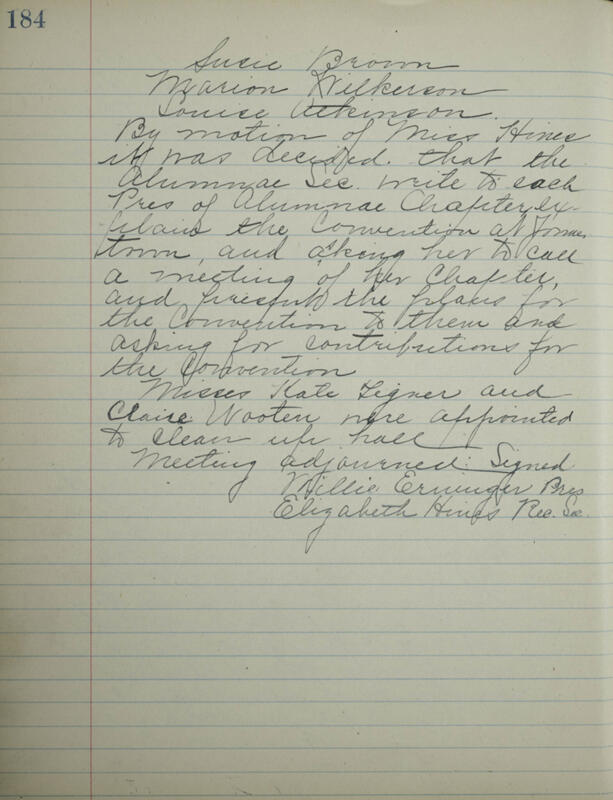 184
Susie Brown
Marion Wilkerson
Louise Atkinson.
By motion of Miss Hines
it was decided. that the
Alumnae Sec. write to each
Pres of Alumnae Chapter, ex-
plain the Convention at James
town, and asking her to call
a meeting of her Chapter,
and present the plans for
the Convention to them and
asking for contributions for
the Convention
Misses Kate Tigner and
Claire Wooten were appointed
to clean up hall
Meeting adjourned: Signed
Millie Pres
Elizabeth Hines Rec. Sec.